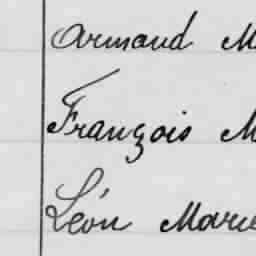 Armand M
François M
Léon Marie